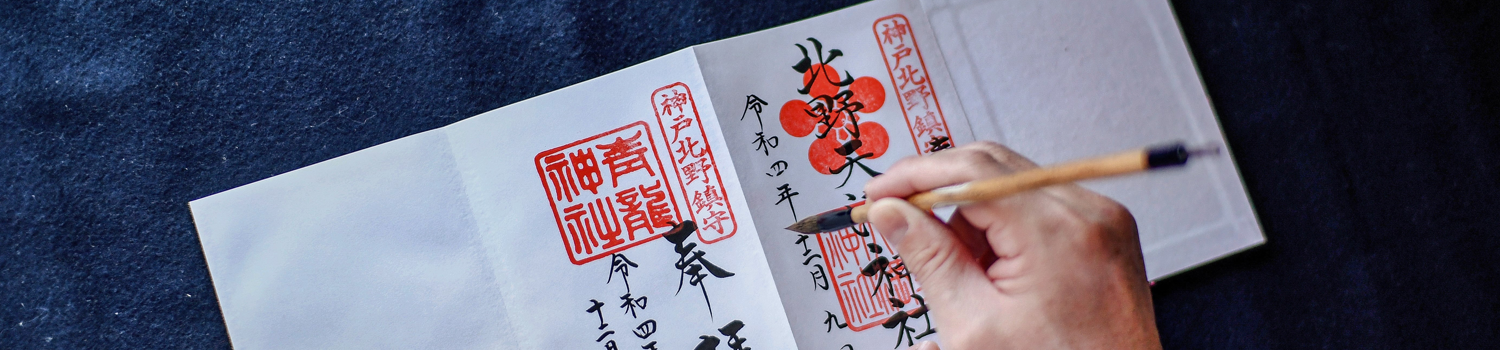 神戸北野鎮守
北野天満神社
令和四年十二月九日
神戸北野鎮守
奉拝
青龍神社
令和四年
十二月